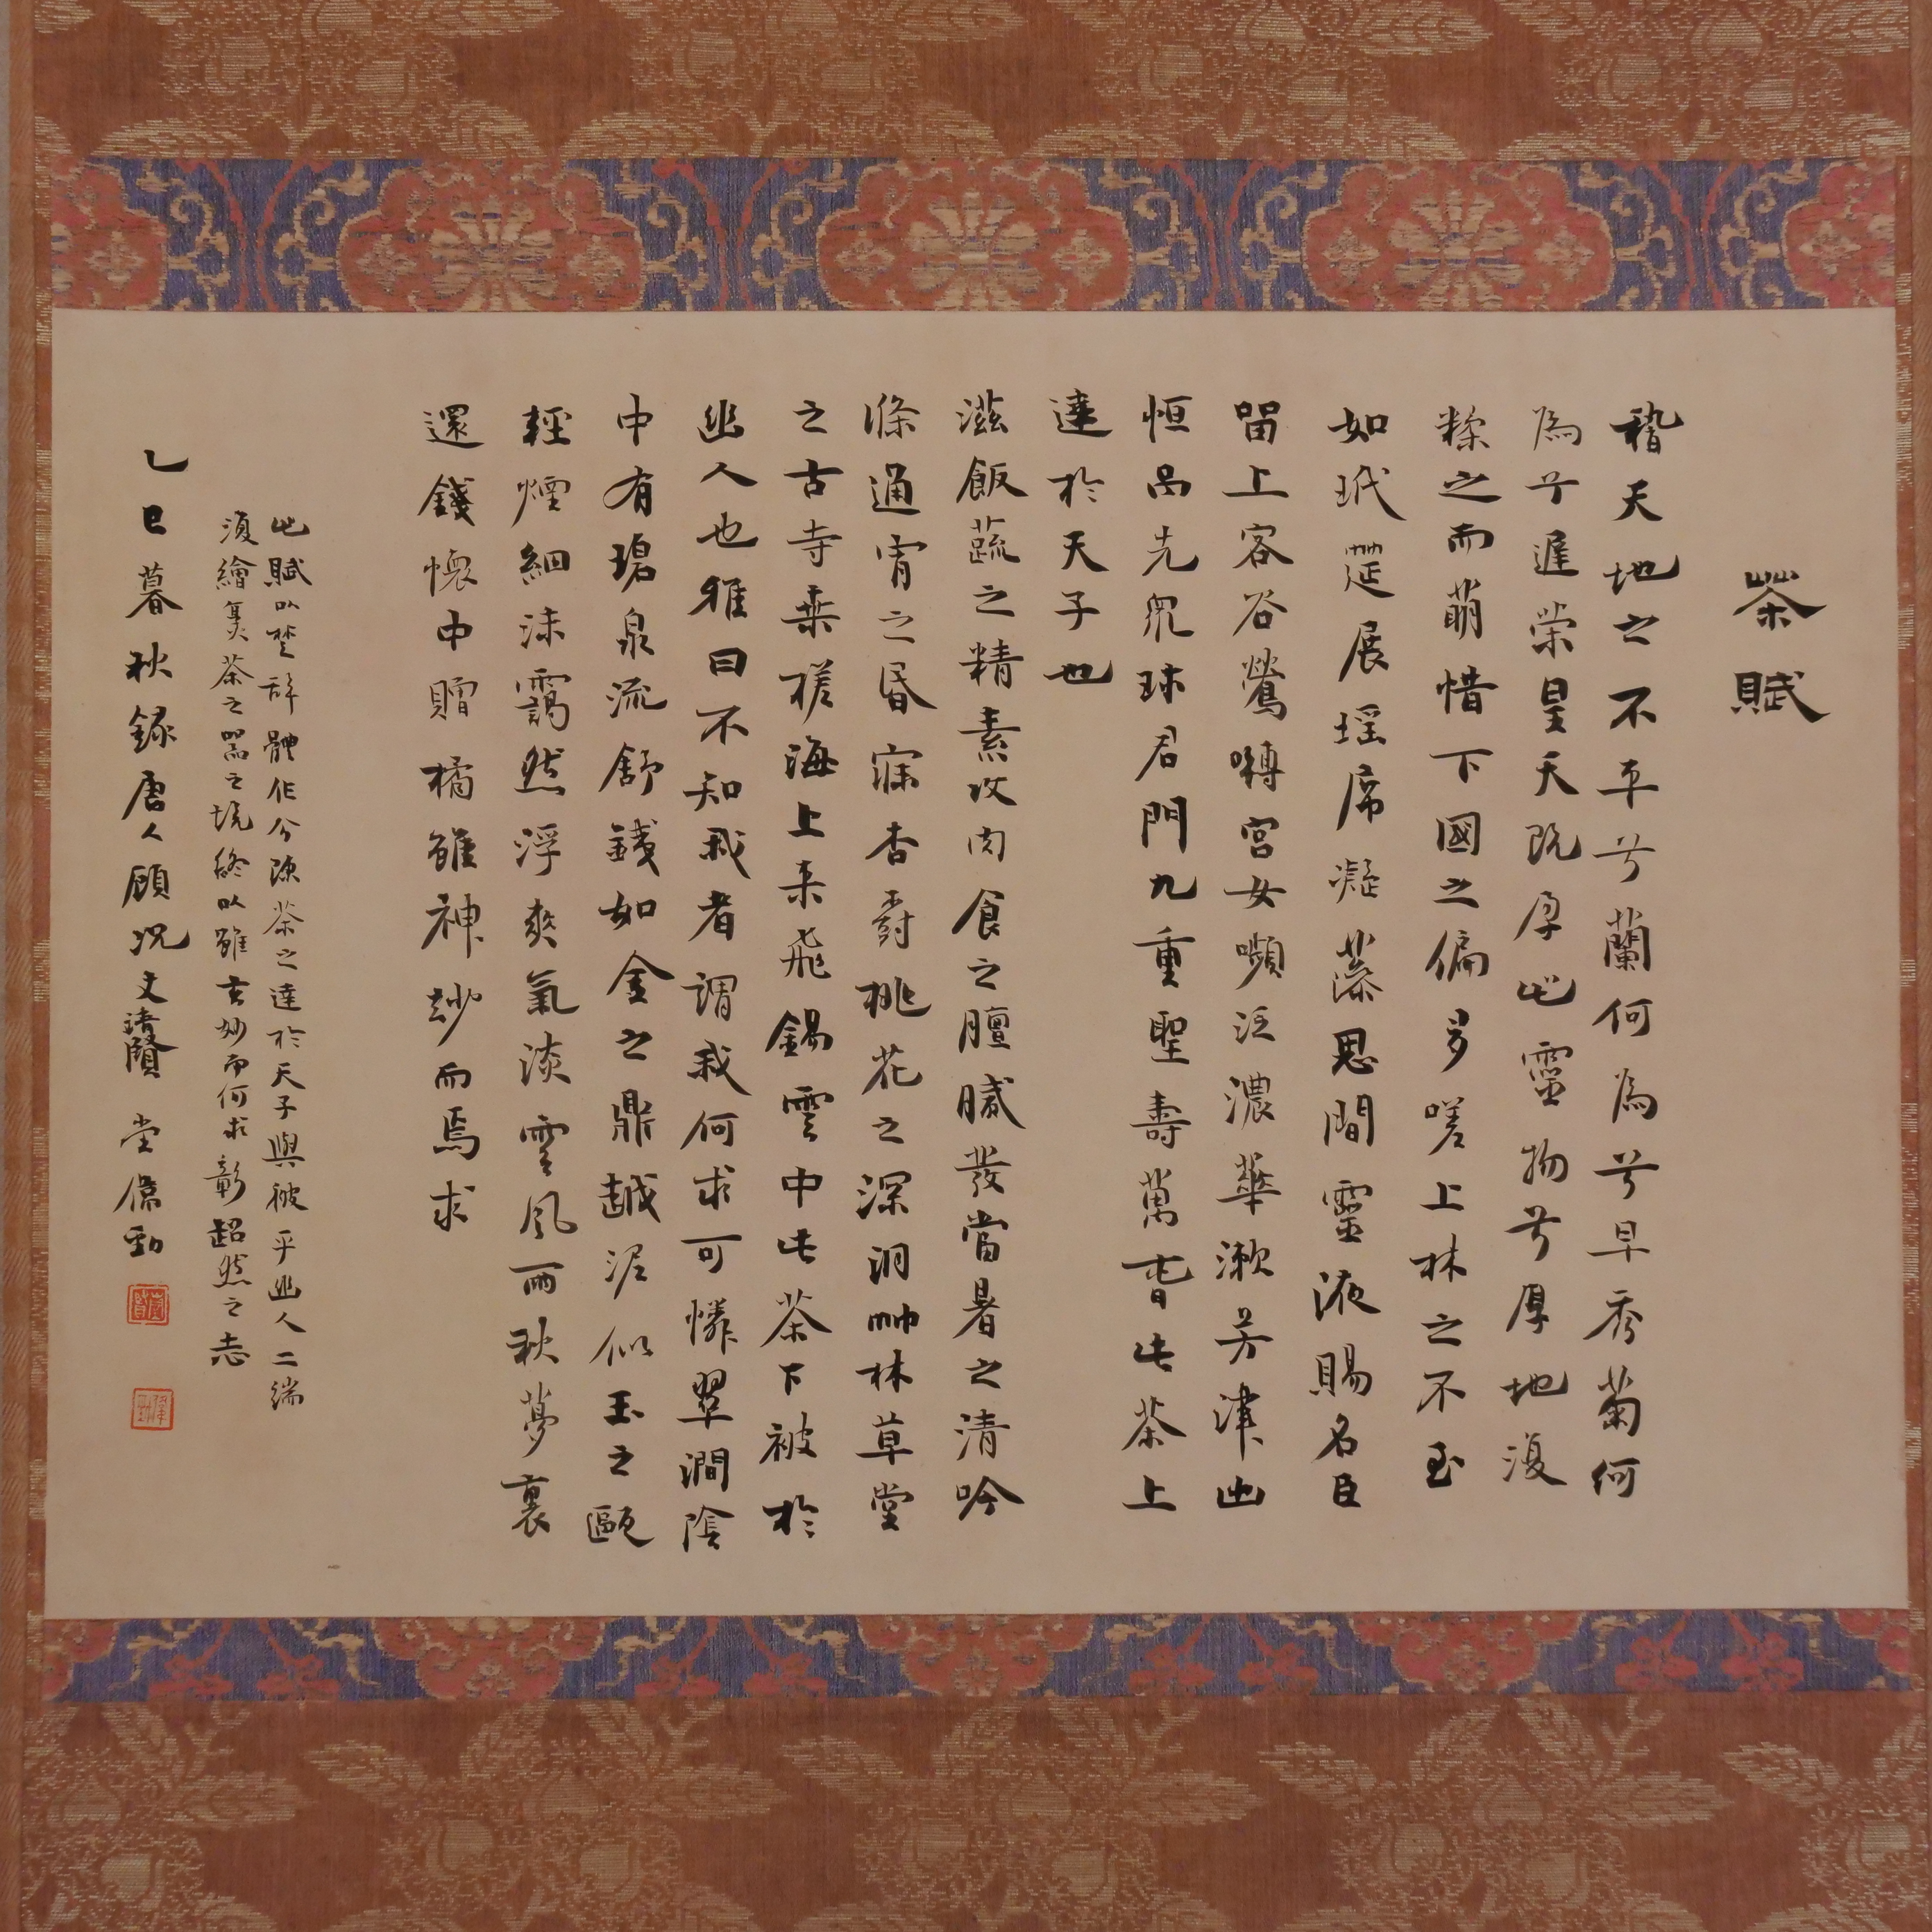 茶賦
稽天地之不平兮蘭何為兮早秀菊何
為兮遲榮皇天既孕此靈物兮厚地復
糅之而萌惜下國之偏多嗟上林之不至
如玳筵展瑤席凝藻思間靈液賜名臣
留上客谷鶯囀宮女嚬泛濃華漱芳津出
恒品先眾珍君門九重聖壽萬春此茶上
達於天子也
滋飯蔬之精素攻肉食之膻膩發當暑之清吟
滌通宵之昏寐杏樹桃花之深洞竹林草堂
之古寺乘槎海上來飛錫雲中此茶下被於
幽人也雅曰不知我者謂我何求可憐翠澗陰
中有碧泉流舒鐵如金之鼎越泥似玉之甌
輕煙細沫靄然浮爽氣淡雲風雨秋夢裏
還錢懷中贈橘雖神妙而焉求
此賦以楚辭體作分陳茶之達於天子與被乎幽人二端
須繪其茶之器之境終以雖玄妙而何求彰超然之志
乙巳暮秋錄唐人顧況文 賢堂 勁